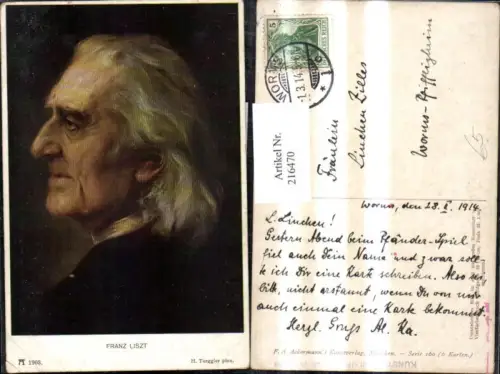 FRANZ LISZT
1903.
H. Torggler pinx.
WORMS
1.3.14
5
Artikel Nr.
216470
Fräulein
Linchen Zilles
Worms-Pfiffligheim
65
Worms, den 28. II. 1914.
L. Linchen!
Gestern Abend beim Pfänder-Spiel
fiel auch Dein Name und zwar soll-
te ich Dir eine Karte schreiben. Also sei
bitte, nicht erstaunt, wenn Du von mir
auch einmal eine Karte bekommst.
Herzl.
F. A. Ackermann's Kunstverlag, München. – Serie (6 Karten.)